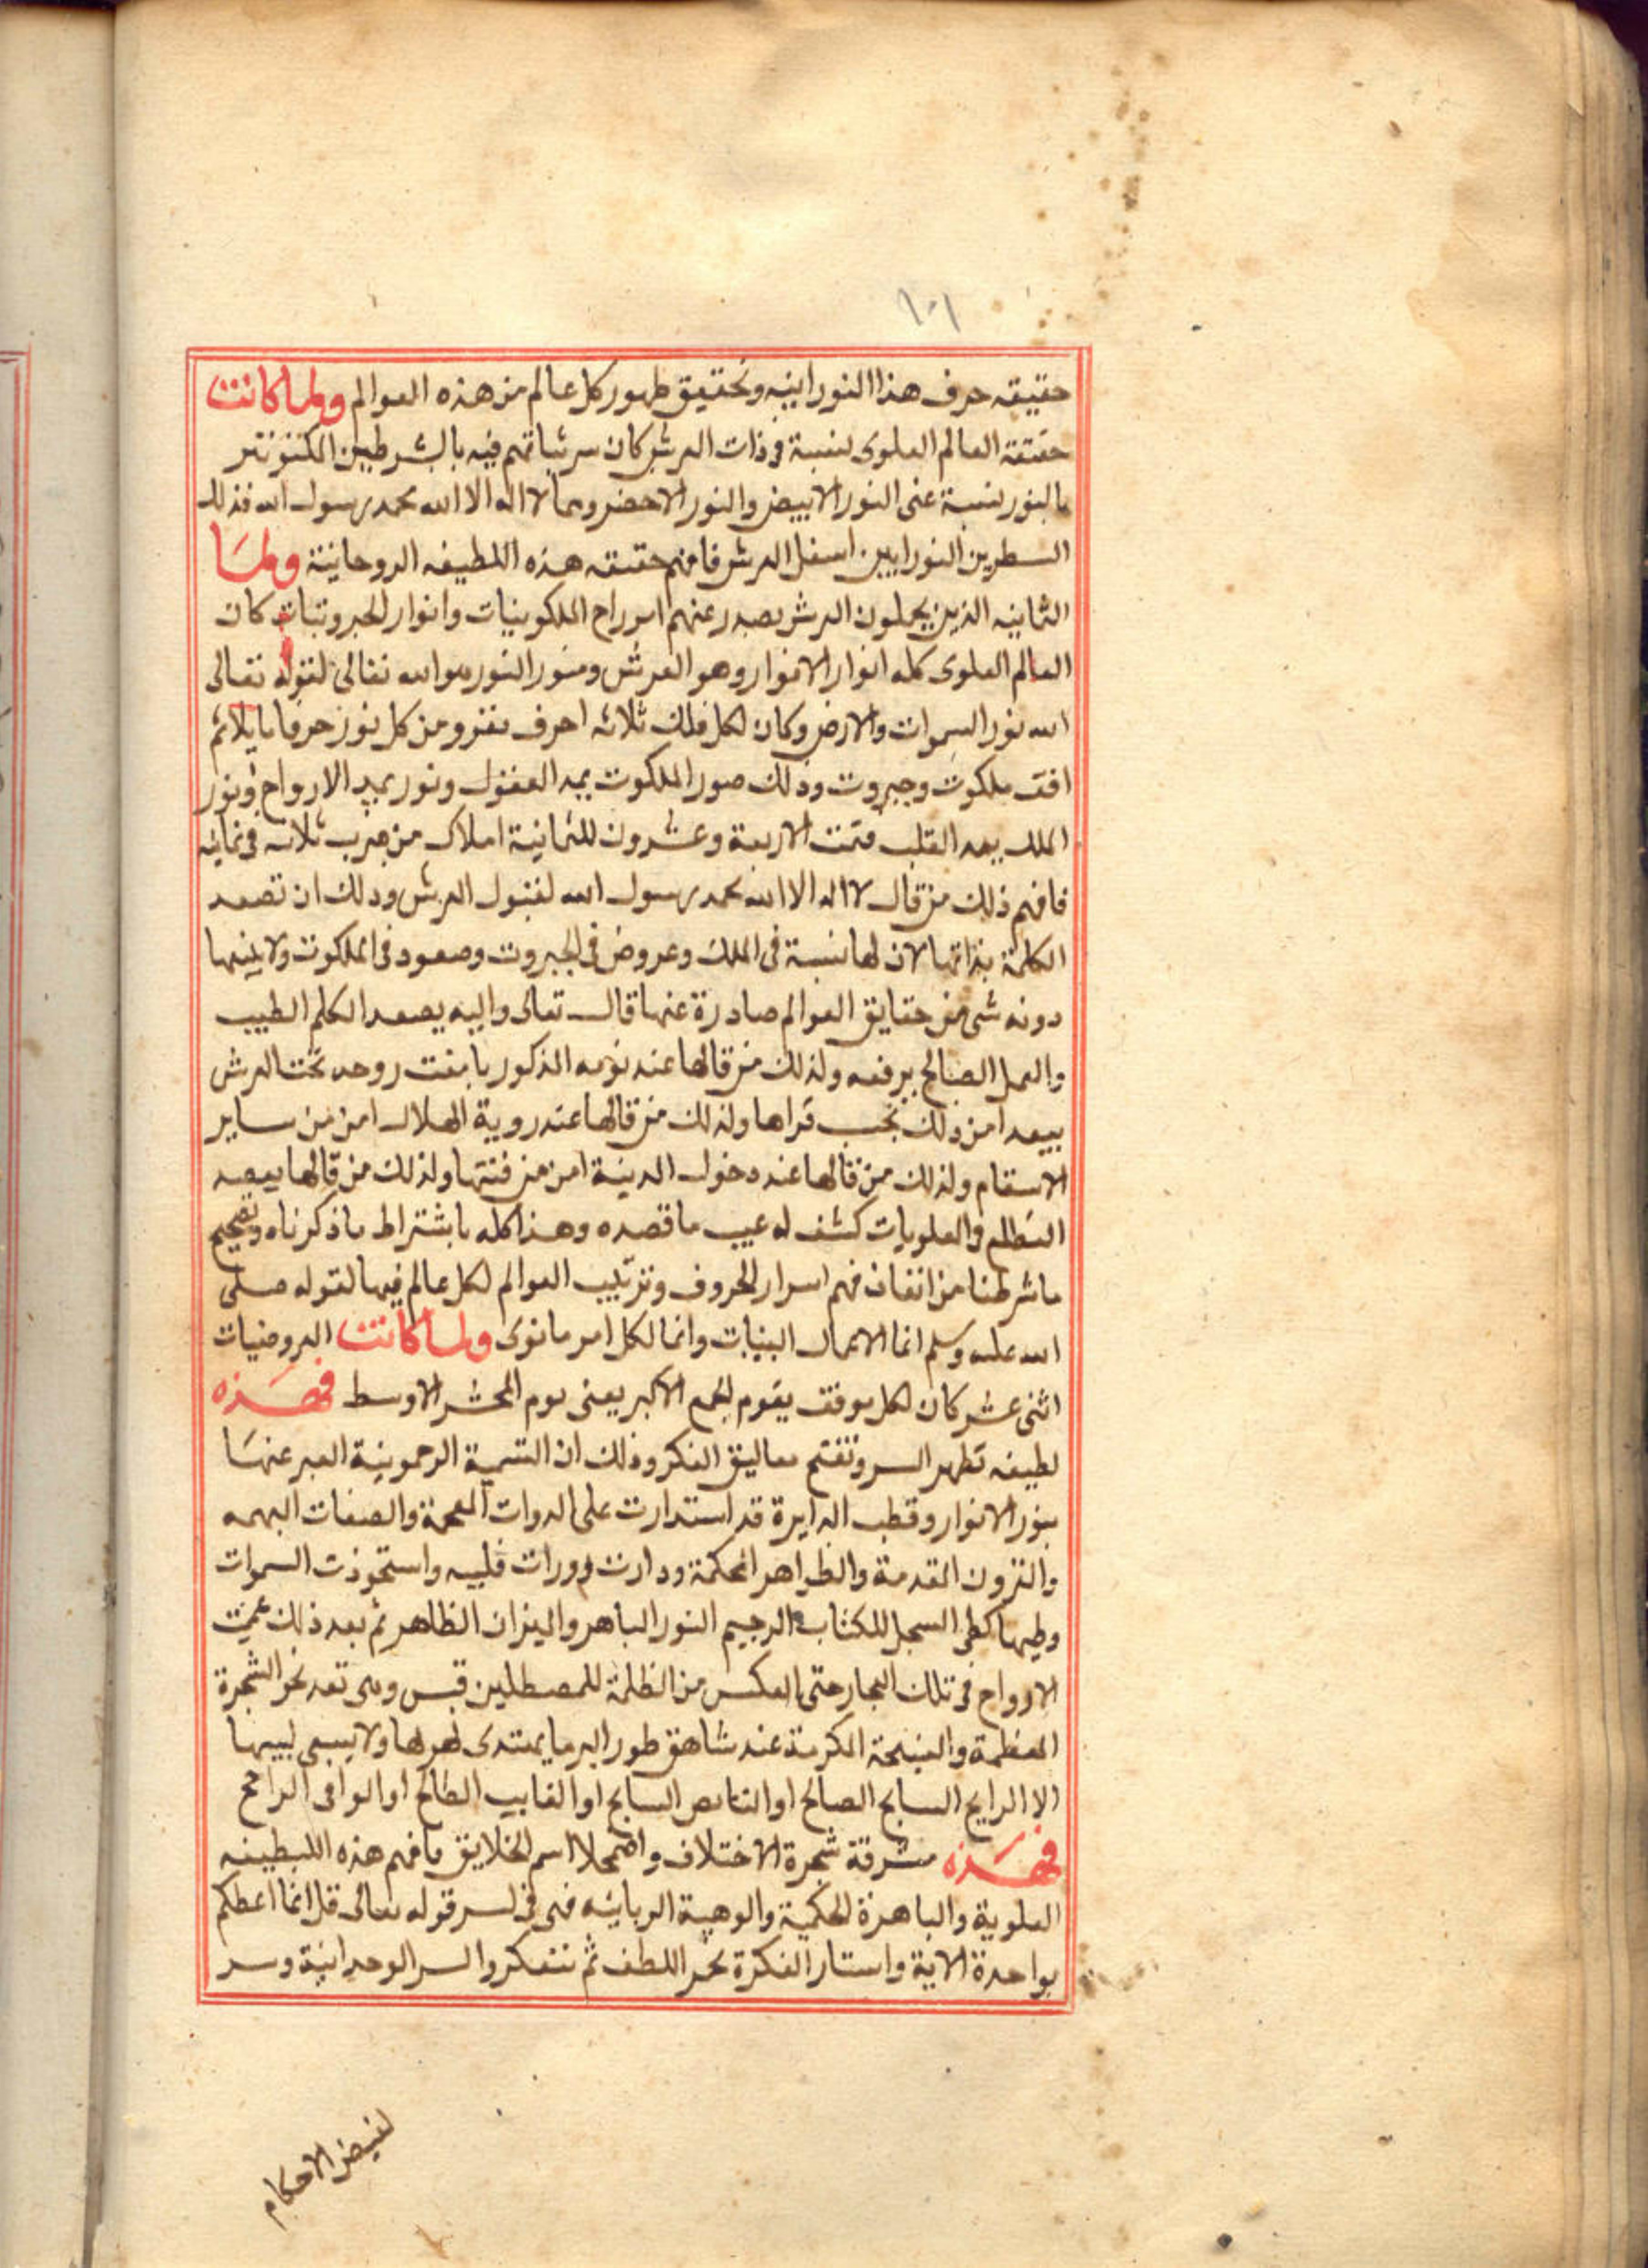 ١٠١
حقيقه حرف هذا النورانيه وتحقيق ظهور كل عالم من هذه العوالم ولما كانت
حقيقة العالم العلوى لنسبة فى ذات العرش كان سر ثباتهم فيه بالشرطين
بالنور لنسبة عنى النور الابيض والنور الاخضر وهما لا اله الا الله محمد رسول الله فذلك
السطرين النورانيين اسفل العرش فافهم حقيقه هذه اللطيفه الروحانية ولما
الثمانيه الذين يحملون العرش يصدر عنهم اسرار الملكوتيات وانوار الجبروتيات كان
العالم العلوى كله انوار الانوار وهو العرش ومنور النور هو الله تعالى لقوله تعالى
الله نور السموات والارض وكان لكل فلك ثلاثه احرف من كل نور حرفا يلائم
افق ملكوت وجبروت وذلك صور الملكوت يمد العقول ونور يمد الارواح ونور
الملك يمد القلب فتمت الاربعة وعشرون للثمانية املاك من ضرب ثلاثه فى ثمانيه
فافهم ذلك من قال لا اله الا الله محمد رسول الله لقبول العرش وذلك ان تصعد
الكلمة بذاتها لان لها نسبة فى الملك وعروض فى الجبروت وصعود فى الملكوت ولا
دونه شى من حقايق العوالم صادرة عنها قال تعالى واليه يصعد الكلم الطيب
والعمل الصالح يرفعه ولذلك من قالها عند نومه المذكور باتت روحه تحت العرش
ذلك بحسب قراها ولذلك من قالها عند روية الهلال امن من ساير
الاسقام ولذلك من قالها عند دخول المدينة امن من فتنتها ولذلك من قالها بقصد
التطلع والعلويات كشف له غيب ما قصده وهذا كله باشتراط ما ذكرناه وتصحيح
ما شرطنا من اتقان فهم اسرار الحروف وترتيب العوالم لكل عالم فيها لقوله صلى
الله عليه وسلم انما الاعمال البنيات وانما لكل امر ما نوى ولما كانت البروجيات
اثنى عشر كان لكل موقف يقوم لجمع الاكبر يعنى يوم المحشر الاوسط فهذه
لطيفه تطهر السر وتفتح معاليق الفكر وذلك ان التسمية الرحمونية المعبر عنها
بنور الانوار وقطب الدايرة قد استدارت على الدوات المعجمة والصفات المبهمه
والقرون المقدمة والظواهر المحكمة ودارت دورات قلبيه واستحوذت السموات
وطيها كطى السجل للكتاب الرحيم النور الباهر والميزان الظاهر ثم بعد ذلك عميت
الارواح فى تلك البحار حتى انعكس من الظلمة للمصطلين قبس وهى تعد نحو الشجرة
المعظمة والفسحة المكرمة عند شاهق طور البر ما يهتدى لهولها ولا يسمى لبيبها
الا الرايح السابح الصالح او الناهض السابح او الغايب الطالح او الوافى الراجح
فهذه مشرقة شجرة الاختلاف واضمحلا اسم الخلايق فافهم هذه اللطيفه
العلوية والباهرة الحكمية والوهبية الربانيه فهى فى لسر قوله تعالى قل انما اعظكم
بواحدة الاية واستار الفكرة بحر اللطف ثم تتفكروا السر الوحدانية وسر
لفيض الاحكام